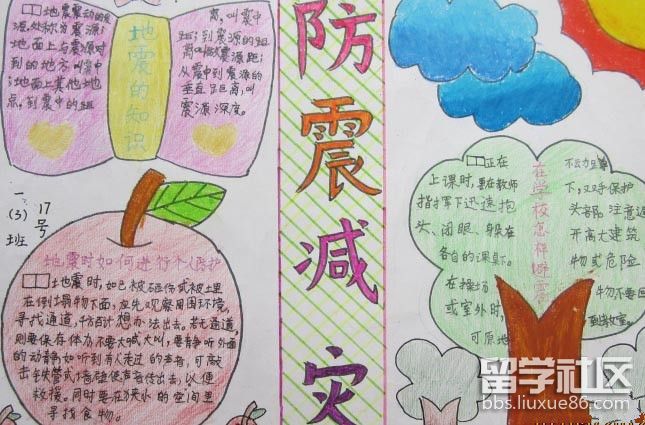 地震的知识
地震震动的发
源处称为震源；
地面上与震源对
到的地方叫震中
；地面上其他地
点，到震中的距
离，叫震中
距；到震源的距
离叫做震源距；
从震中到震源的
垂直距离，叫
震源深度。
一
(3)
班
17
号
地震时如何进行个人防护
地震时，如已被砸伤或被埋
在倒塌物下面，应先观察周围环境，
寻找通道，千方百计想办法出去。若无通道，
则要保存体力不要大喊大叫，要静听外面
的动静，如听到有人走过的声音，可敲
击铁管或墙壁使声音传出去，以便
救援。同时要在狭小的空间里
寻找食物。
防震减灾
在学校怎样避震
正在
上课时，要在教师
指挥下迅速抱
头、闭眼、躲在
各自的课桌下。
在操场
或室外时，
可原地
不动蹲
下，双手保护
头部，注意避
开高大建筑
物或危险
物不要回
到教室。
留学社区
bbs.liuxue86.com